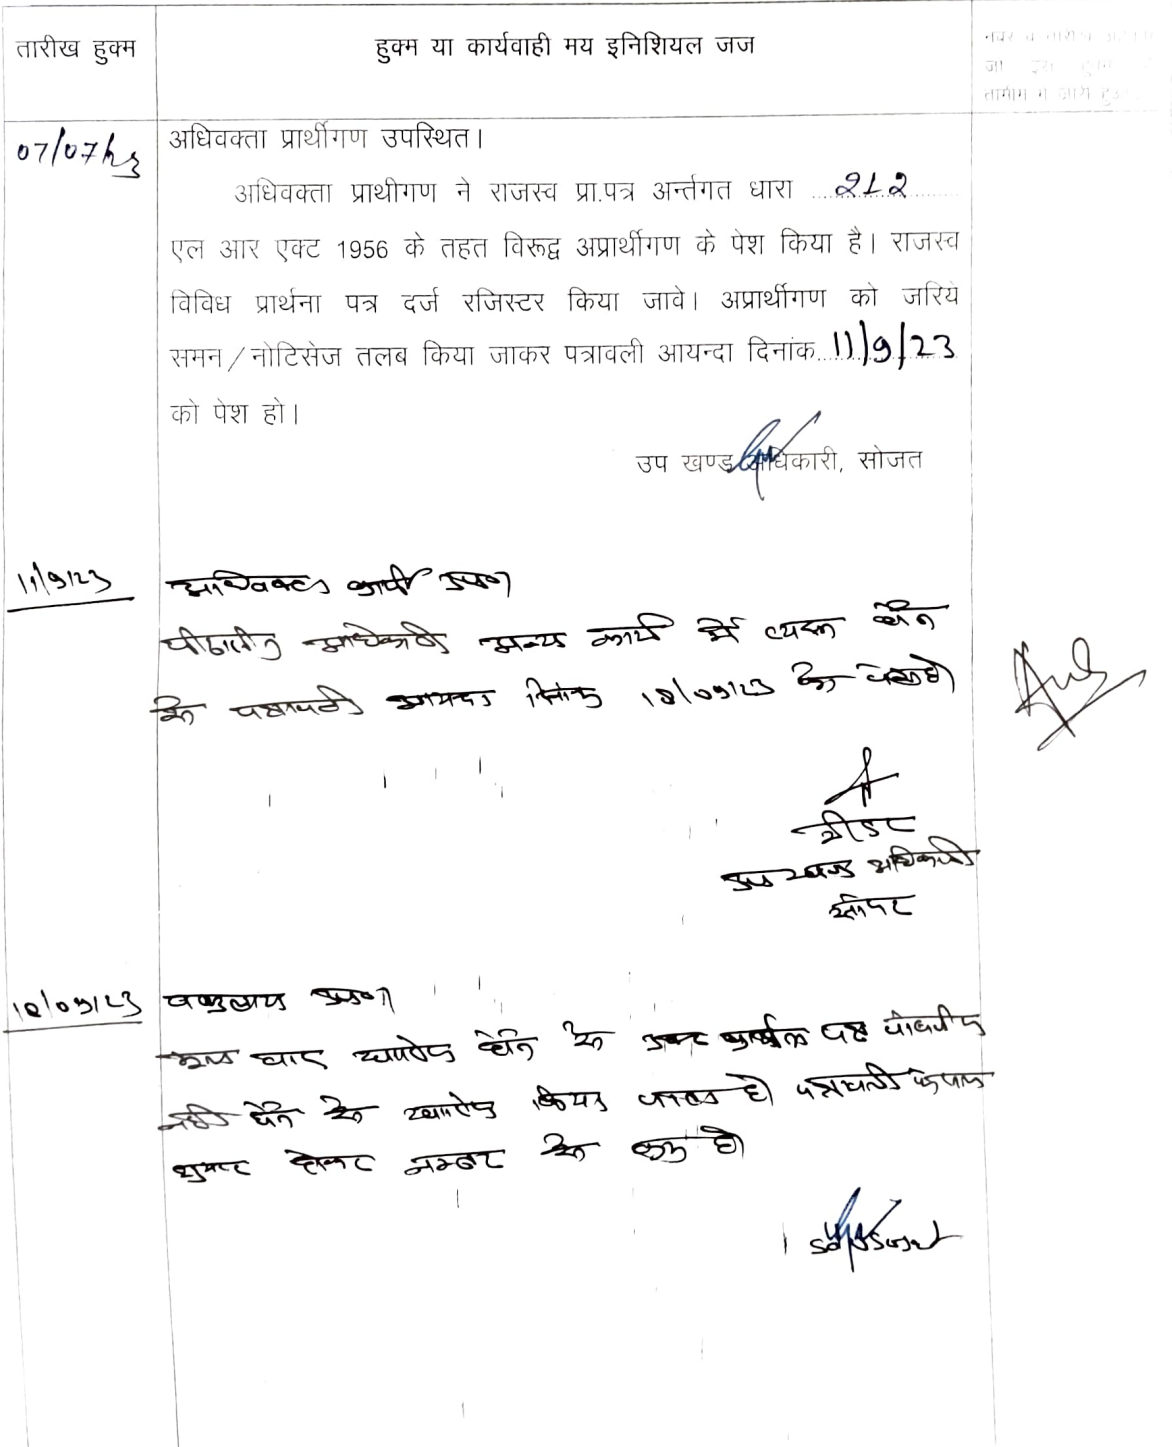 तारीख हुक्म
हुक्म या कार्यवाही मय इनिशियल जज
07/07/23
अधिवक्ता प्रार्थीगण उपस्थित।
अधिवक्ता प्राथीगण ने राजस्व प्रा.पत्र अर्न्तगत धारा ...212
एल आर एक्ट 1956 के तहत विरूद्व अप्रार्थीगण के पेश किया है। राजस्व
विविध प्रार्थना पत्र दर्ज रजिस्टर किया जावे। अप्रार्थीगण को जरिये
समन/नोटिसेज तलब किया जाकर पत्रावली आयन्दा दिनांक..11/9/23
को पेश हो।
उप खण्ड अधिकारी, सोजत
11/9/23
अधिवक्ता प्रार्थी उप०।
पीठासीन अधिकारी अन्य कार्य में व्यस्त होने
से पत्रावली आयन्दा दिनांक 18/09/23 को पेश हो।
रीडर
उप खण्ड अधिकारी
सोजत
18/09/23
उप०।
मूल वाद खारिज होने से पत्र
नही होने से खारिज किया जाता है। पत्रावली फैसल
शुमार होकर नम्बर से कम हो।
SDO Sojat